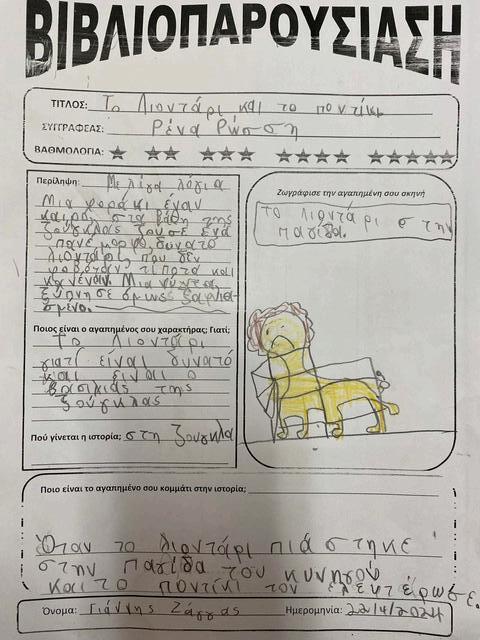 ΒΙΒΛΙΟΠΑΡΟΥΣΙΑΣΗ
ΤΙΤΛΟΣ: Το Λιοντάρι και το ποντίκι
ΣΥΓΓΡΑΦΕΑΣ: Ρένα Ρώσση
ΒΑΘΜΟΛΟΓΙΑ:
Περίληψη: Με λίγα λόγια
Μια φορά κι έναν
καιρό, στα βάθη της
ζούγκλας ζούσε ένα
πανέμορφο, δυνατό
λιοντάρι, που δεν
φοβόταν τίποτα και
κανέναν. Μια νύχτα,
ξύπνησε όμως ξαφνια-
σμένο.
Ποιος είναι ο αγαπημένος σου χαρακτήρας; Γιατί;
Το Λιοντάρι
γιατί είναι δυνατό
και είναι ο
βασιλιάς της
ζούγκλας
Πού γίνεται η ιστορία; στη ζουγκλα
Ζωγράφισε την αγαπημένη σου σκηνή
το λιοντάρι στην
παγίδα.
Ποιο είναι το αγαπημένο σου κομμάτι στην ιστορία;
Όταν το λιοντάρι πιάστηκε
στην παγίδα του κυνηγού
και το ποντίκι τον ελευτέρωσε.
Όνομα: Γιάννης Ζάγγας Ημερομηνία: 22/4/2024